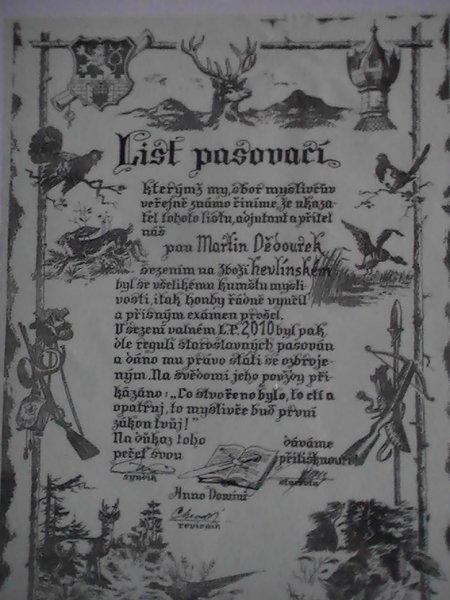 List pasovací
kterýmž my, sbor myslivcův
veřejně známo činíme, že ukaza-
tel tohoto listu, adjutant a přítel
náš
pan Martin Dědourek
sezením na zboží hevlínském
byl se všelikému kumštu mysli-
vosti, i tak honby řádně vyučil
a přísným exámen prošel.
V sezení valném L.P. 2010 byl pak
dle regulí staroslavných pasován
a dáno mu právo státi se ozbroje-
ným. Na svědomí jeho povždy při-
kázáno: „Co stvořeno bylo, to cti a
opatruj, to myslivče buď první
zákon tvůj!"
Na důkaz toho dáváme
pečeť svou přitisknouti
syndik starosta
Anno Domini
revisník